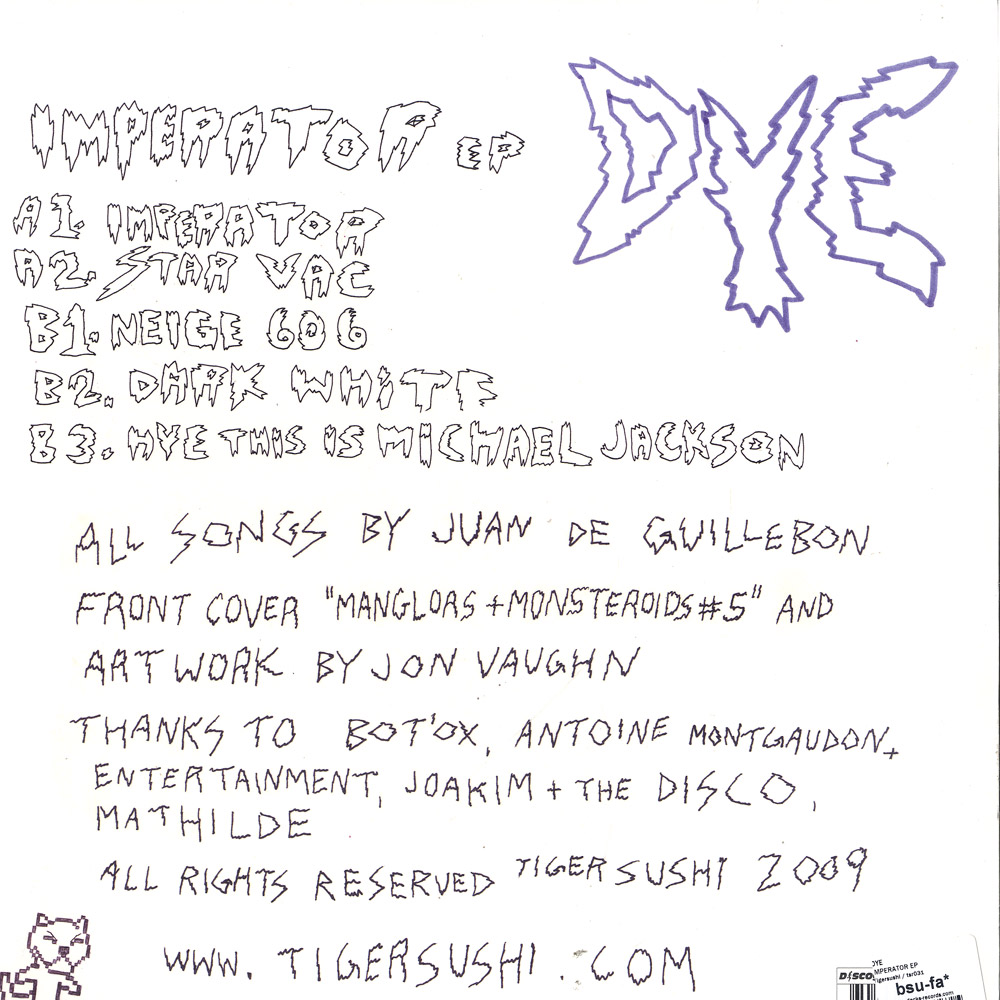 IMPERATOR EP
DYE
A1. IMPERATOR
A2. STAR VAC
B1. NEIGE 606
B2. DARK WHITE
B3. HYE THIS IS MICHAEL JACKSON
ALL SONGS BY JUAN DE GUILLEBON
FRONT COVER "MANGLORS + MONSTEROIDS #5" AND
ARTWORK BY JON VAUGHN
THANKS TO BOT'OX, ANTOINE MONTGAUDON +
ENTERTAINMENT, JOAKIM + THE DISCO,
MATHILDE
ALL RIGHTS RESERVED TIGERSUSHI 2009
WWW.TIGERSUSHI.COM
DYE
IMPERATOR EP
Tigersushi / tsr031
DISCO
bsu-fa*